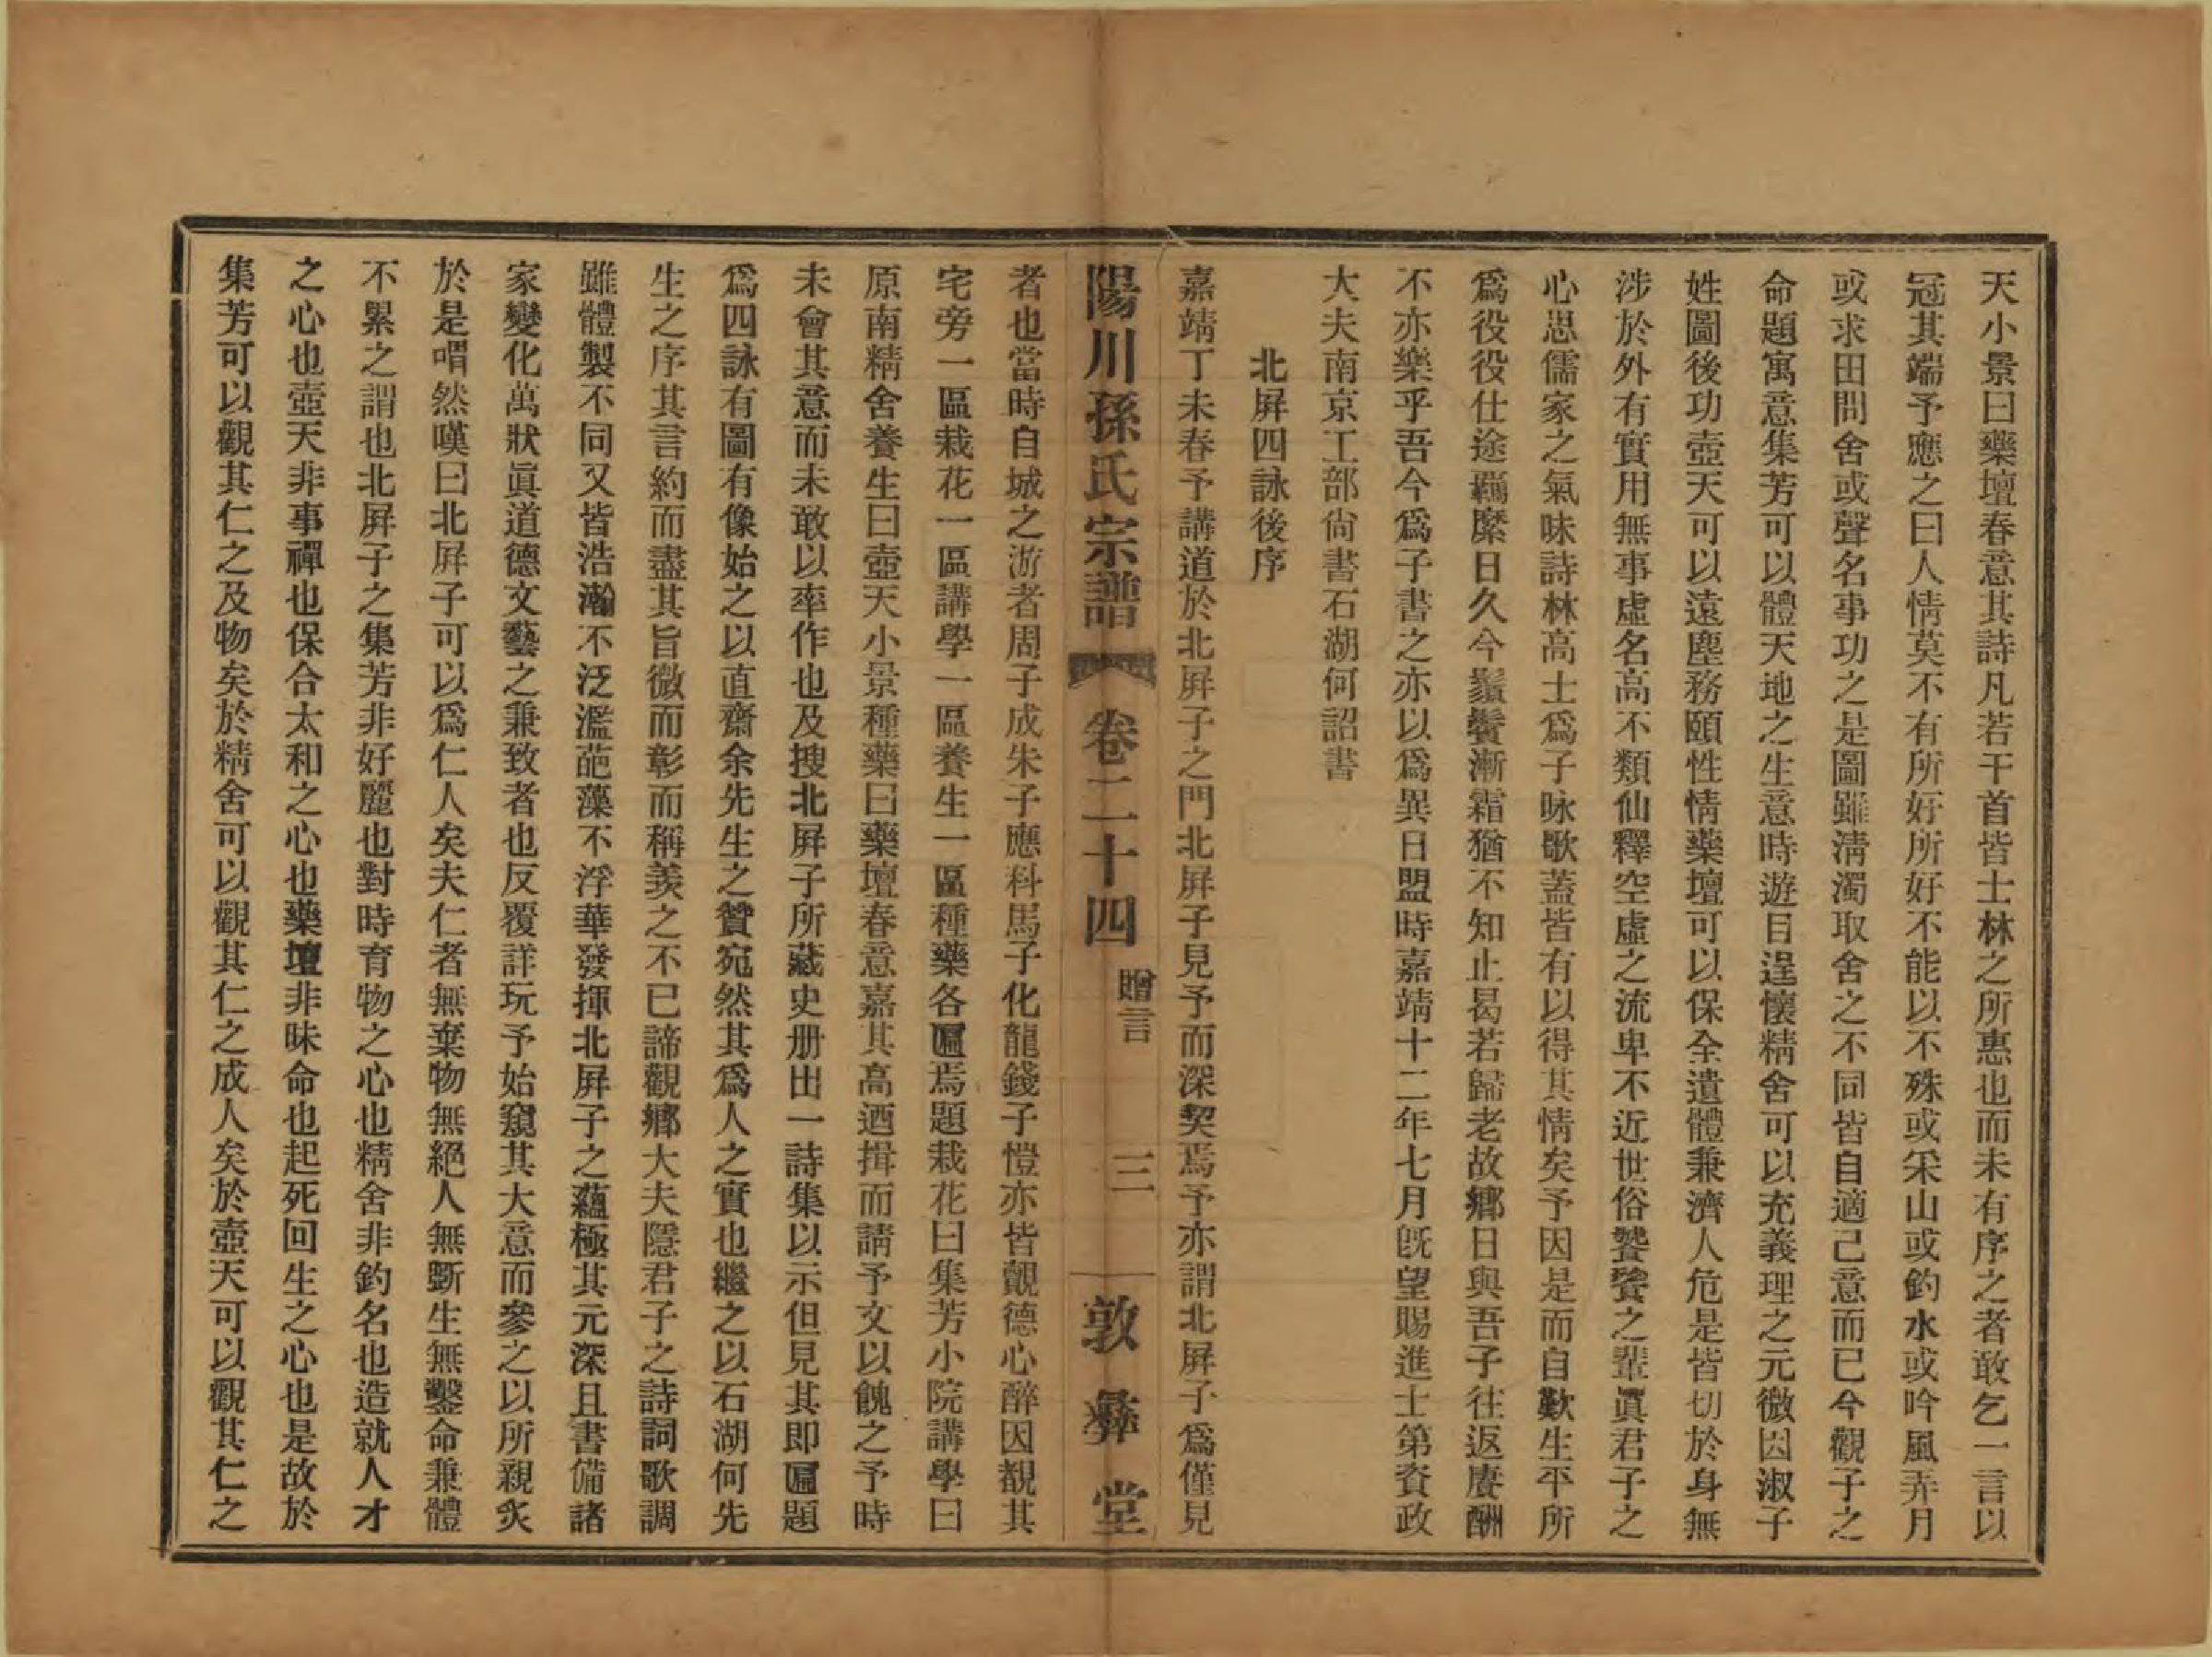 天小景曰藥壇春意其詩凡若干首皆士林之所惠也而未有序之者敢乞一言以
冠其端予應之曰人情莫不有所好所好不能以不殊或采山或釣水或吟風弄月
或求田問舍或聲名事功之是圖雖清濁取舍之不同皆自適己意而已今觀子之
命題寓意集芳可以體天地之生意時遊目逞懷精舍可以充義理之元微因淑子
姓圖後功壺天可以遠塵務頤性情藥壇可以保全遺體兼濟人危是皆切於身無
涉於外有實用無事虛名高不類仙釋空虛之流卑不近世俗饕餮之輩眞君子之
心思儒家之氣味詩林高士爲子咏歌蓋皆有以得其情矣予因是而自歎生平所
爲役役仕途羈縻日久今鬚鬢漸霜猶不知止曷若歸老故鄉日與吾子往返賡酬
不亦樂乎吾今爲子書之亦以爲異日盟時嘉靖十二年七月旣望賜進士第資政
大夫南京工部尙書石湖何詔書
北屛四詠後序
嘉靖丁未春予講道於北屛子之門北屛子見予而深契焉予亦謂北屛子爲僅見
陽川孫氏宗譜 卷二十四 贈言 三 敦彝堂
者也當時自城之游者周子成朱子應科馬子化龍錢子愷亦皆覿德心醉因覩其
宅旁一區栽花一區講學一區養生一區種藥各匾焉題栽花曰集芳小院講學曰
原南精舍養生曰壺天小景種藥曰藥壇春意嘉其高迺揖而請予文以餽之予時
未會其意而未敢以率作也及搜北屛子所藏史册出一詩集以示但見其即匾題
爲四詠有圖有像始之以直齋余先生之贊宛然其爲人之實也繼之以石湖何先
生之序其言約而盡其旨微而彰而稱羨之不已諦觀鄉大夫隱君子之詩詞歌調
雖體製不同又皆浩瀚不泛濫葩藻不浮華發揮北屛子之蘊極其元深且書備諸
家變化萬狀眞道德文藝之兼致者也反覆詳玩予始窺其大意而參之以所親炙
於是喟然嘆曰北屛子可以爲仁人矣夫仁者無棄物無絕人無斷生無鑿命兼體
不累之謂也北屛子之集芳非好麗也對時育物之心也精舍非釣名也造就人才
之心也壺天非事禪也保合太和之心也藥壇非昧命也起死回生之心也是故於
集芳可以觀其仁之及物矣於精舍可以觀其仁之成人矣於壺天可以觀其仁之